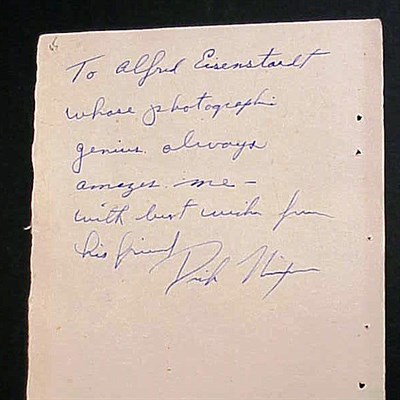 To Alfred Eisenstaedt
whose photographic
genius always
amazes me –
with best wishes from
his friend
Dick Nixon